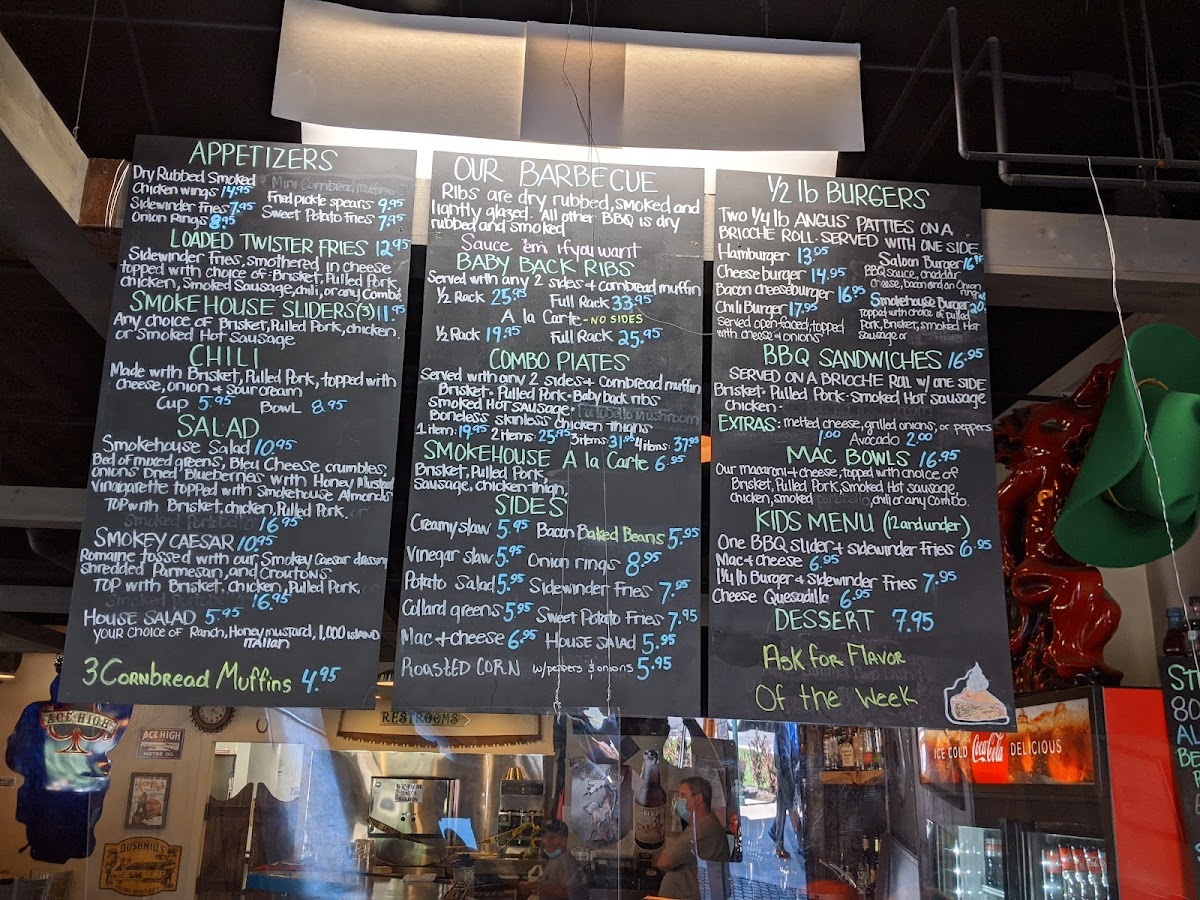 APPETIZERS
Dry Rubbed Smoked
Chicken wings 14.95
Sidewinder Fries 7.95
Onion Rings 8.95
Mini Cornbread Muffins
Fried pickle spears 9.95
Sweet Potato Fries 7.95
LOADED TWISTER FRIES 12.95
Sidewinder Fries, smothered in cheese
topped with choice of: Brisket, Pulled Pork,
chicken, Smoked Sausage, chili, or any Combo.
SMOKEHOUSE SLIDERS (3) 11.95
Any choice of Brisket, Pulled Pork, chicken,
or Smoked Hot Sausage
CHILI
Made with Brisket, Pulled Pork, topped with
cheese, onion + sour cream
Cup 5.95 Bowl 8.95
SALAD
Smokehouse Salad 10.95
Bed of mixed greens, Bleu Cheese crumbles,
onions Dried Blueberries with Honey Mustard
Vinaigarette topped with Smokehouse Almonds
TOP with Brisket, chicken, Pulled Pork, or
Smoked Portobello 16.95
SMOKEY CAESAR 10.95
Romaine tossed with our Smokey Caesar dressing
shredded Parmesan, and Croutons
TOP with Brisket, Chicken, Pulled Pork,
16.95
HOUSE SALAD 5.95
YOUR CHOICE OF Ranch, Honey mustard, 1,000 ISLAND
ITALIAN
3 Cornbread Muffins 4.95
OUR BARBECUE
Ribs are dry rubbed, smoked and
lightly glazed. All other BBQ is dry
rubbed and smoked
Sauce 'em if you want
BABY BACK RIBS
Served with any 2 sides + cornbread muffin
1/2 Rack 25.95 Full Rack 33.95
A la Carte - NO SIDES
1/2 Rack 19.95 Full Rack 25.95
COMBO PLATES
Served with any 2 sides + Cornbread muffin
Brisket • Pulled Pork • Baby back ribs
Smoked Hot sausage • Portobello Mushroom
Boneless skinless chicken thighs
1 item: 19.95 2 items: 25.95 3 items: 31.95 4 items: 37.95
SMOKEHOUSE A la Carte 6.95
Brisket, Pulled Pork,
Sausage, chicken thigh,
SIDES
Creamy slaw 5.95 Bacon Baked Beans 5.95
Vinegar slaw 5.95 Onion rings 8.95
Potato Salad 5.95 Sidewinder Fries 7.95
Collard greens 5.95 Sweet Potato Fries 7.95
Mac + cheese 6.95 HOUSE SALAD 5.95
ROASTED CORN w/peppers & onions 5.95
1/2 lb BURGERS
TWO 1/4 lb ANGUS PATTIES ON A
BRIOCHE ROLL. SERVED WITH ONE SIDE
Hamburger 13.95
Cheeseburger 14.95
Bacon cheeseburger 16.95
Chili Burger 17.95
Served open-faced, topped
with cheese & onions
Saloon Burger 16.95
BBQ sauce, cheddar
cheese, bacon and an Onion
ring
Smokehouse Burger 20.
topped with choice of pulled
Pork, Brisket, smoked Hot
sausage or
BBQ SANDWICHES 16.95
SERVED ON A BRIOCHE ROLL W/ ONE SIDE
Brisket • Pulled Pork • Smoked Hot sausage
Chicken •
EXTRAS: melted cheese, grilled onions, or peppers
1.00 Avocado 2.00
MAC BOWLS 16.95
Our macaroni + cheese, topped with choice of
Brisket, Pulled Pork, Smoked Hot sausage,
chicken, smoked portobello, chili or any combo.
KIDS MENU (12 and under)
One BBQ slider + sidewinder Fries 6.95
Mac + cheese 6.95
1/4 lb Burger + Sidewinder Fries 7.95
Cheese Quesadilla 6.95
DESSERT 7.95
Ask for Flavor
Of the Week
ACE HIGH
ACE HIGH
MOTOR OIL
BUSHMILLS
RESTROOMS
ICE COLD Coca-Cola DELICIOUS